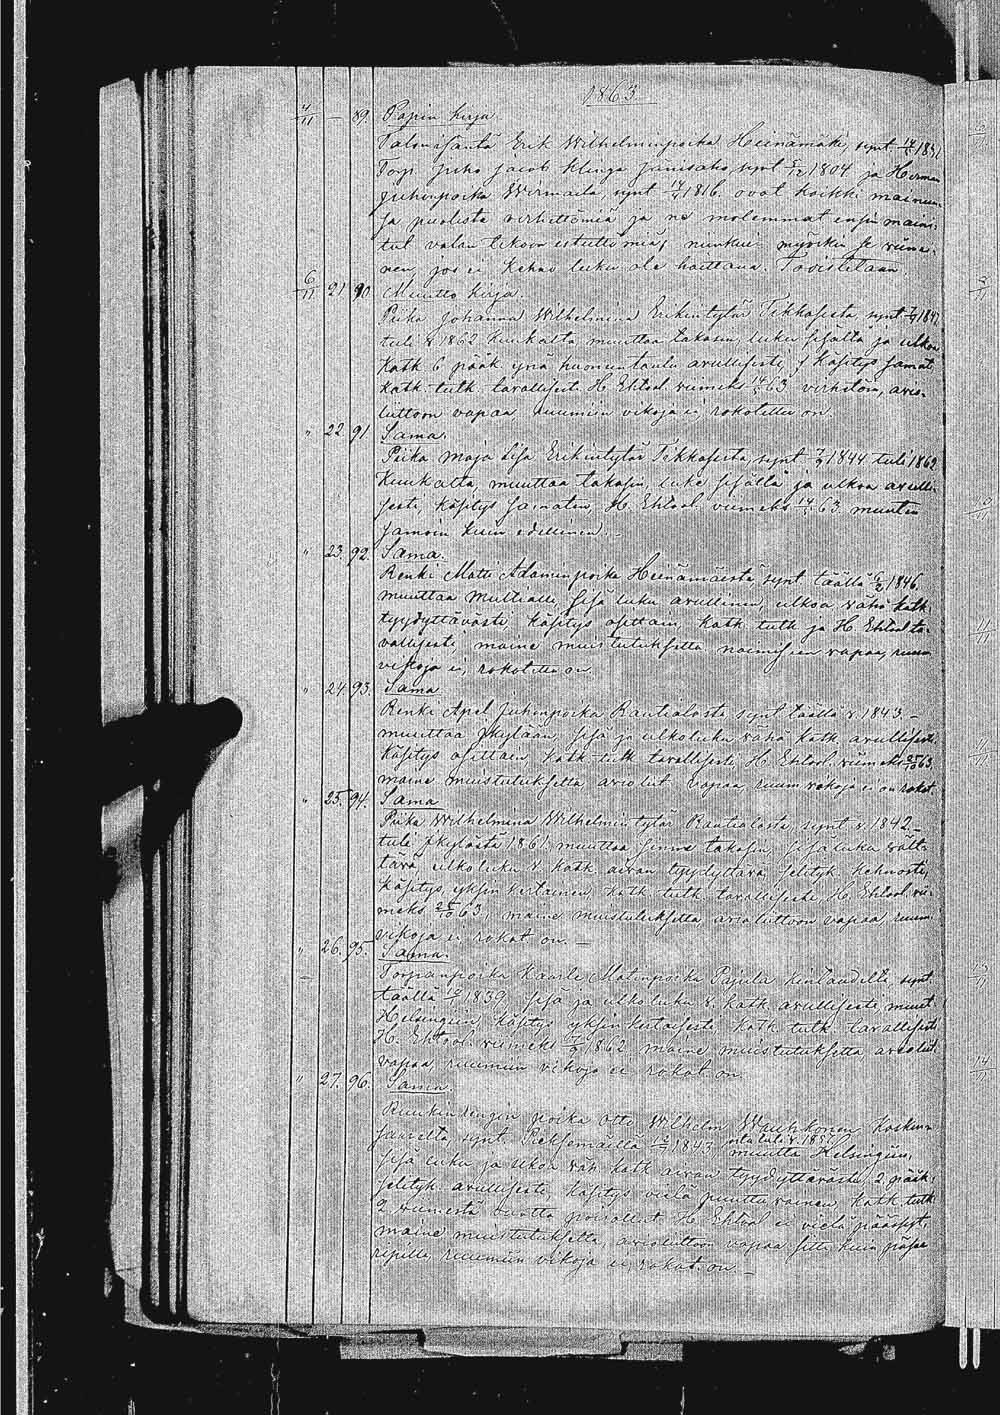 1863.
4/11 — 89. Papin kirja.
Talonisäntä Erik Wilhelminpoika Heinämäki, synt.
Torp. Juho Jacob Klinga Jänisaho, synt 1804 ja Herman
Juhonpoika Wirmaila, synt 1816 ovat kaikki mainen-
sa puolesta virhettömiä ja ne molemmat ensin maini-
tut valan tekoon esteettömiä, niinkuin myöskin se viime-
nen, jos ei kehno luku ole haittana. Todistetaan
6/11 21 90 Muutto kirja.
Piika Johanna Wilhelmina Erikintytär Tikkasesta, synt 1842
tuli v. 1862 Kuukalta muuttaa takasin, luku sisältä ja ulkoa
Katk 6 pääk ynä huoneentaulu avullisesti, käsitys samat,
katk. tutk. tavallisest. H. Ehtool. viimeks 63 virhetön, avio-
liittoon vapaa ruumiin vikoja ei, rokotettu on.
" 22. 91 Sama.
Piika Maja Lisa Erikintytär Tikkasesta, synt 1844 tuli 1862
Kuukalta, muuttaa takasin, luku sisältä ja ulkoa avulli-
sesti, käsitys samaten, H. Ehtool. viimeks 63 muuten
samoin kuin edellinen. —
" 23. 92. Sama.
Renki Matti Adaminpoika Heinämäestä, synt täällä 1846.
muuttaa Multialle, sisä luku avullinen, ulkoa vähä katk.
tyydyttäväste, käsitys osittain, katk tutk ja H. Ehtool ta-
vallisesti, maine muistutuksetta naimiseen vapaa, ruum
vikoja ei, rokotettu on.
" 24. 93. Sama
Renki Apel Juhonpoika Rautialasta synt täällä v. 1843. —
muuttaa kylään, sisä ja ulkoluku vähä katk avullisesti.
käsitys osittain, katk tutk tavallisesti H. Ehtool. viimeks 63.
maine muistutuksetta aviolut. vapaa ruum vikoja ei on rokot.
" 25. 94. Sama
Piika Wilhelmina Wilhelmin tytär Rautialasta synt v. 1842. —
tuli kylästä 1861 muuttaa sinne takasin, sisäluku vält-
tävä, ulkoluku v. katk. aivan tyydyttävä, selityk. kehnosti,
käsitys yksin kertainen, katk tutk tavallisesti, H. Ehtool vii-
meks 63, maine muistutuksetta avioliittoon vapaa, ruum.
vikoja ei rokot on. —
" 26. 95. Sama.
Torpanpoika Kaarle Matinpoika Pajula synt.
täällä 1839, sisä ja ulkoluku v. katk avullisesti, muut.
Helsingiin, käsitys yksinkertaisesti, katk tutk. tavallisesti
H. Ehtool. viimeks 1862 maine muistutuksetta aviolut.
vapaa, ruumiin vikoja ei rokot on
" 27. 96. Sama
Ruukin rengin poika Otto Wilhelm Wauhkonen Koskin-
saarelta, synt. Pieksämällä 1843 muutta Helsingiin,
sisä luku ja ulkoa väh. katk aivan tyydyttäväste, 2 pääk.
selityk. avullisesti, käsitys vielä puuttuvainen, katk. tutk
2 viimestä vuotta poisollut H. Ehtool ei vielä päässyt,
maine muistutuksetta, avioliittoon vapaa sitte kuin pääsee
ripille, ruumiin vikoja ei, rokot. on. —